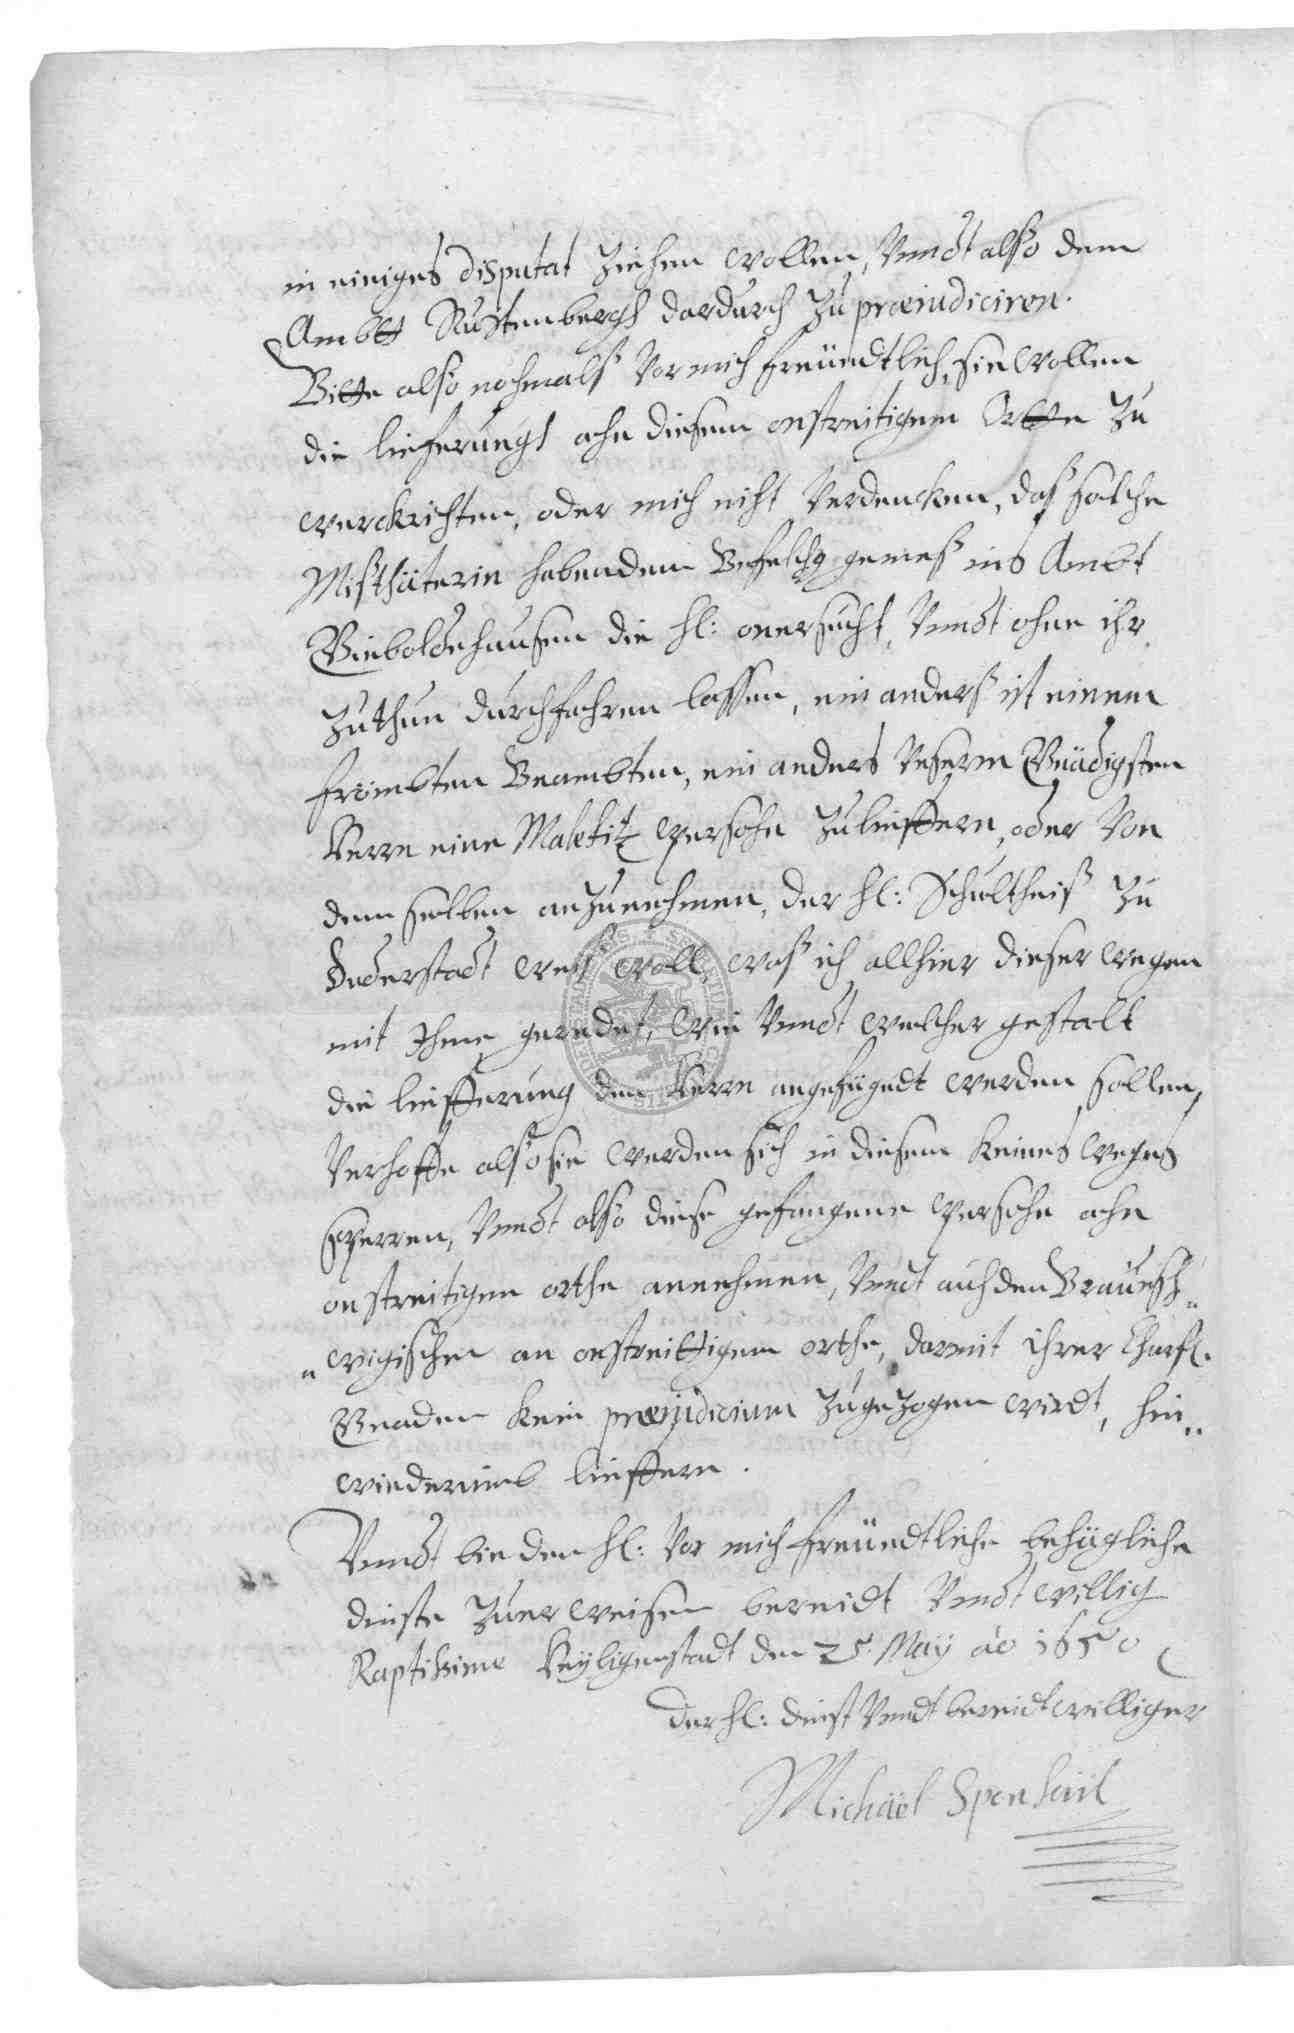 in einiges disputat ziehen wollen, Vnndt also dem
Ambtt Rustenbergh dardurch zu præiudiciren.
Bitte also nochmals Vor mich freundtlich, sie wollen
die lieferungh ahn diesem onstreitigem Ortte zu
werckrichten, oder mich nicht Verdencken, das solche
Misthäterin habendem Befelch gemeß ins Ambt
Gieboldehausen die hl: onersucht, Vnndt ohne ihr
zuthun durchfahren lassen, ein anders ist einem
frömbten Beambten, ein anders Vnserm Gnädigsten
Herrn eine Malefitz persohn zulieffern, oder Von
demselben anzunehmen, der hl: Schultheiß zu
Duderstadt weis woll, was ich allhier dieser wegen
mit Ihme geredet, wie Vnndt welcher gestalt
die liefferung den Herrn angefügedt werden sollen,
Verhoffe also sie werden sich in diesem keines weges
sperren, Vnndt also diese gefangene persohn ahn
onstreitigen orthe annehmen, Vnndt auch den Braunsch„
„wigischen an onstreittigem orthe, darmit Ihrer Churfl.
Gnaden kein præjudicium zugezogen wirdt, hin„
wiederumb lieffern.
Vnndt bin den hl: Vor mich freundtliche behägliche
dinste zuerweisen bereidt Vnndt willig
Raptissime Heyligenstadt den 25. May ao 1650
Der hl: dinst Vnndt bereidtwilliger
Michäel Sponsail